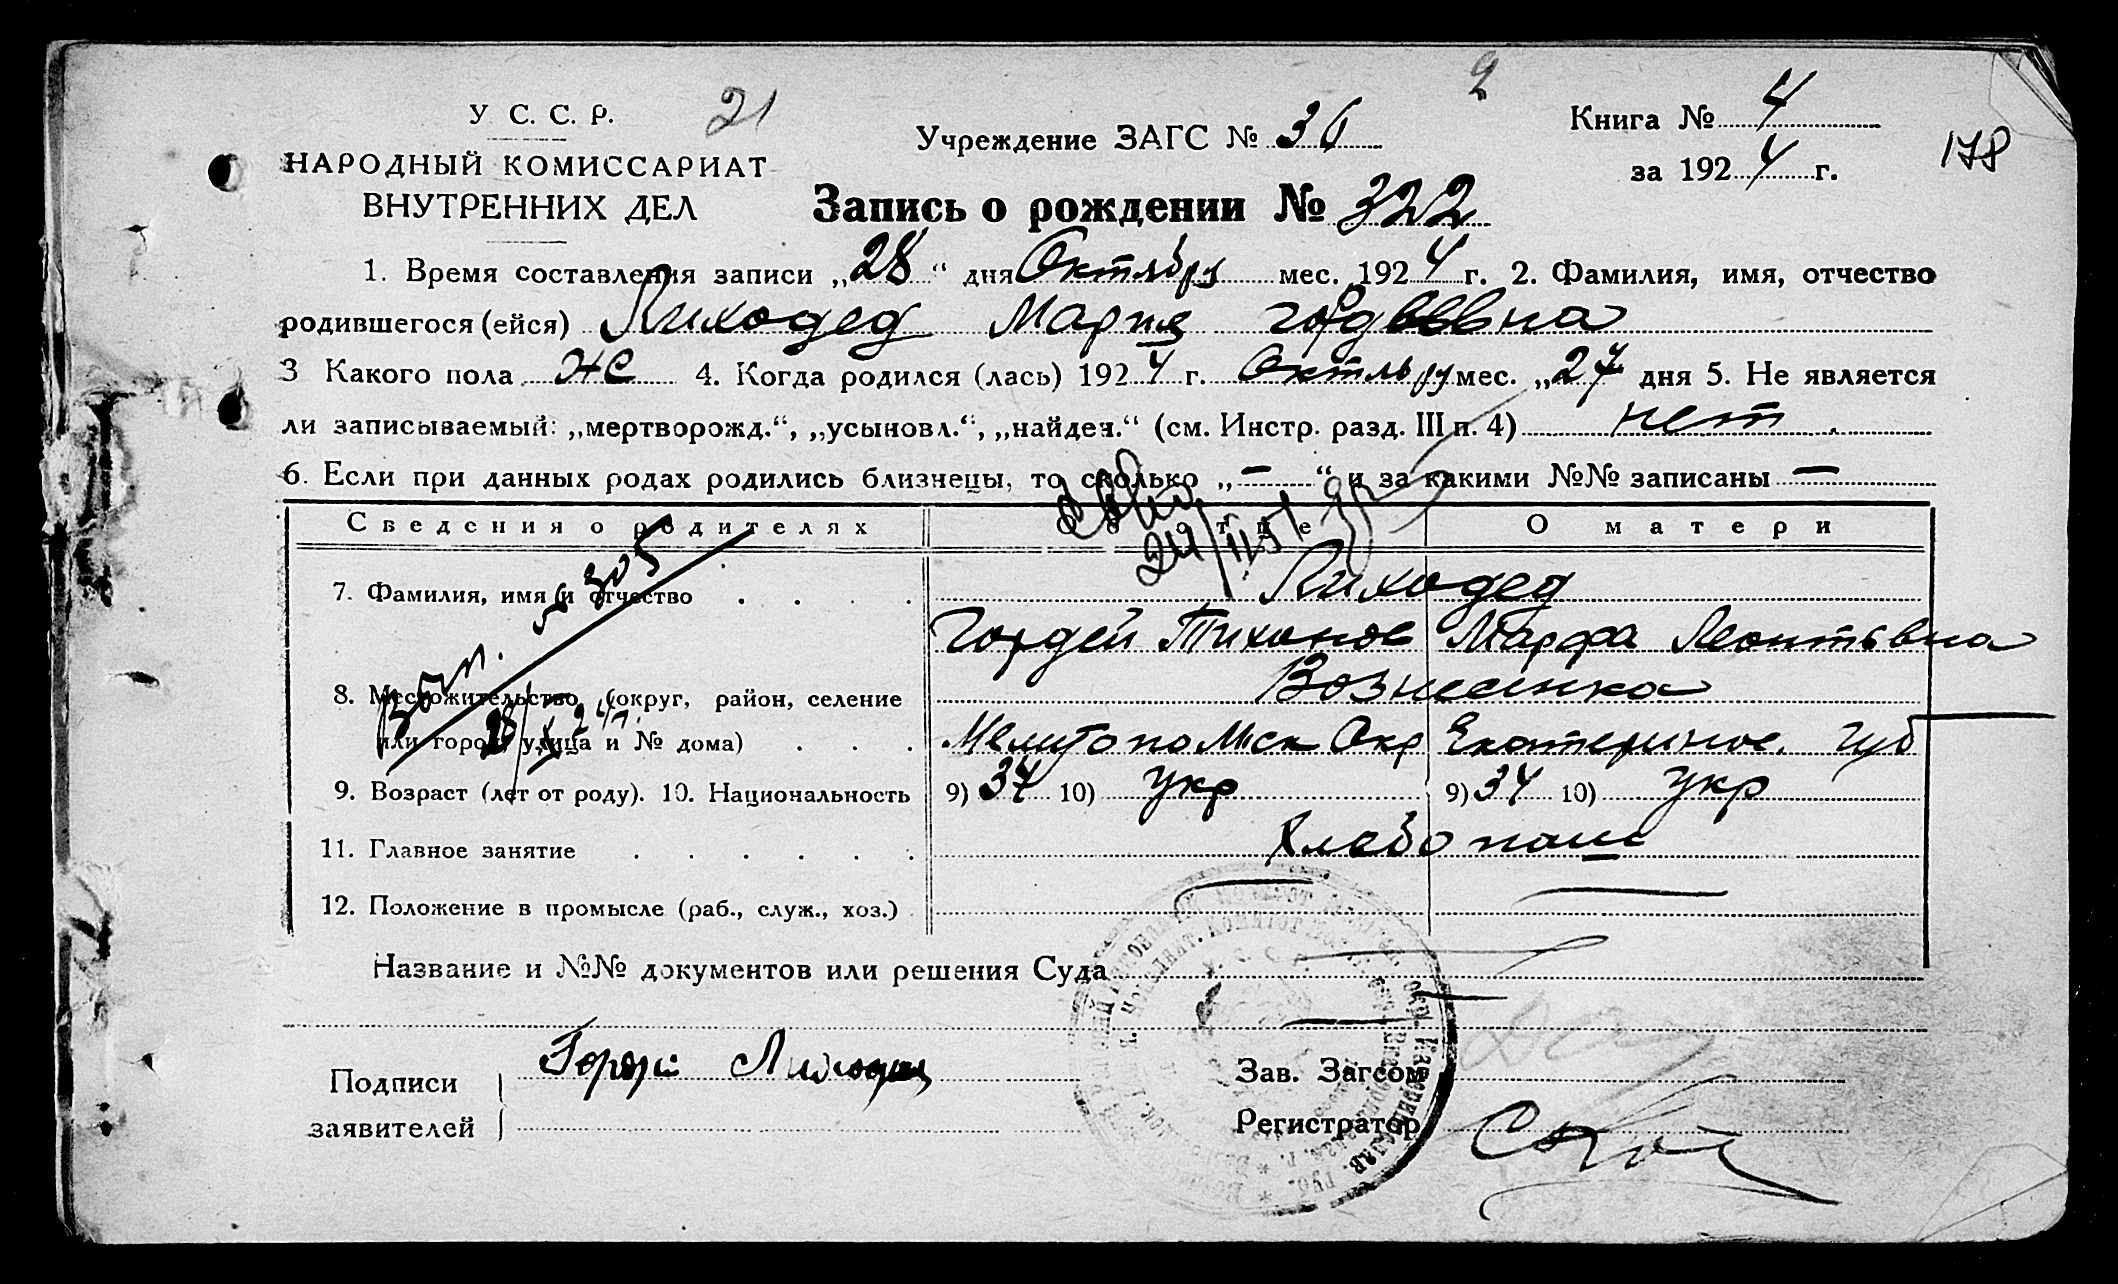 2
У С. С. Р.
21
Учреждение ЗАГС № 36
Книга № 4
НАРОДНЫЙ КОМИССАРИАТ
за 1924 г.
178
ВНУТРЕННИХ ДЕЛ
Запись о рождении № 322
1. Время составления записи „28“ дня Октября мес. 1924 г. 2. Фамилия, имя, отчество
родившегося (ейся) Лиходед Мария Гордевна
3 Какого пола же 4. Когда родился (лась) 1924 г. Октября мес. „27 дня 5. Не является
ли записываемый: „мертворожд.“, „усыновл.“, „найден.“ (см. Инстр. разд. III п. 4) нет
6. Если при данных родах родились близнецы, то сколько „—“ и за какими №№ записаны —
Сведения о родителях О б о т ц е О матери
7. Фамилия, имя и отчество Лиходед
Гордей Тихонов Марфа Леонтьвна
8. Местожительство (округ, район, селение Вознесенка
или город, улица и № дома) Мелитопольск Окр Екатеринос. губ
9. Возраст (лет от роду). 10. Национальность 9) 34 10) укр 9) 34 10) укр
11. Главное занятие Хлебопаш
12. Положение в промысле (раб., служ., хоз.)
Название и №№ документов или решения Суда
Подписи Гордей Лиходед
заявителей
Зав. Загсом
Регистратор